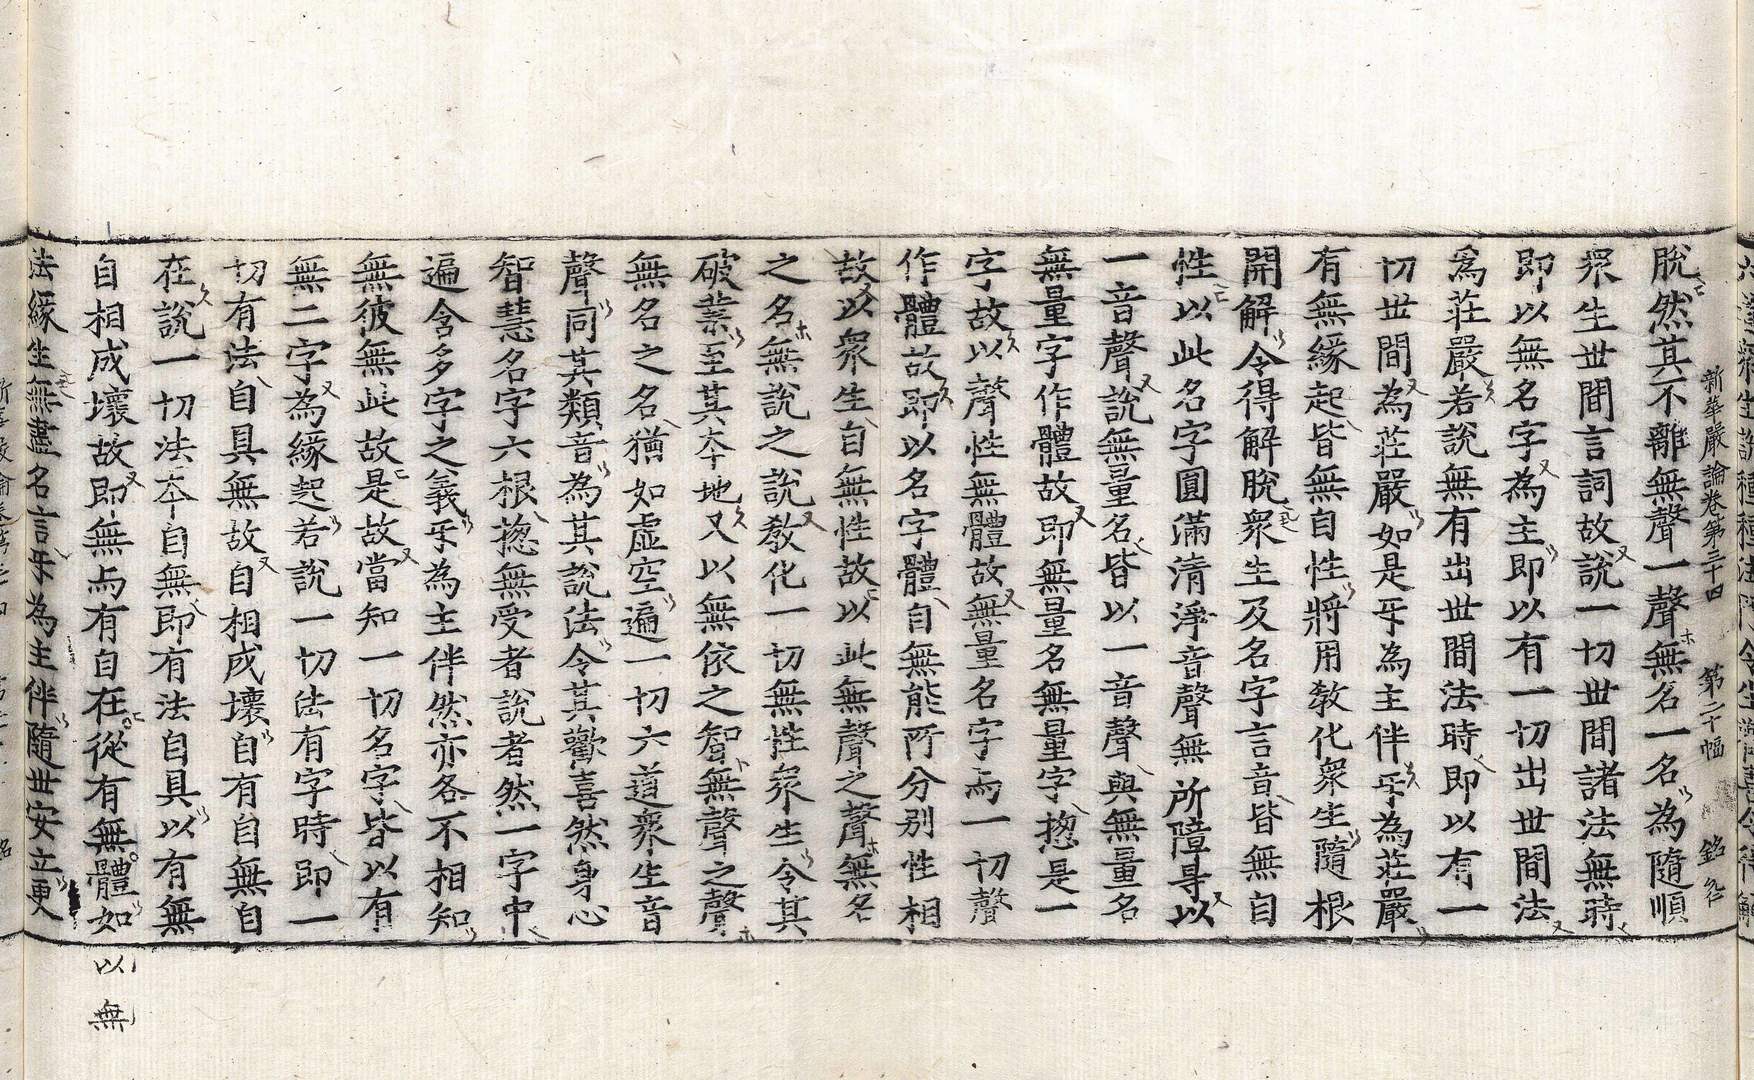 新華嚴論卷第三十四　第二十幅　銘允
脫然其不離無聲一聲無名一名為隨順
眾生世間言詞故說一切世間諸法無時
即以無名字為主即以有一切出世間法
為莊嚴若說無有出世間法時即以有一
切世間為莊嚴如是互為主伴互為莊嚴
有無緣起皆無自性將用教化眾生隨根
開解令得解脫眾生及名字言音皆無自
性以此名字圓滿清淨音聲無所障㝵以
一音聲說無量名皆以一音聲與無量名
無量字作體故即無量名無量字揔是一
字故以聲性無體故無量名字与一切聲
作體故即以名字體自無能所分別性相
故以眾生自無性故以此無聲之聲無名
之名無說之說教化一切無性眾生令其
破業至其本地又以無依之智無聲之聲
無名之名猶如虛空遍一切六道眾生音
聲同其類音為其說法令其歡喜然身心
智慧名字六根揔無受者說者然一字中
遍含多字之義互為主伴然亦各不相知
無彼無此故是故當知一切名字皆以有
無二字為緣起若說一切法有字時即一
切有法自具無故自相成壞自有自無自
在說一切法本自無即有法自具以有無
自相成壞故即無与有自在從有無體如
以無
法緣生無盡名言互為主伴隨世安立更